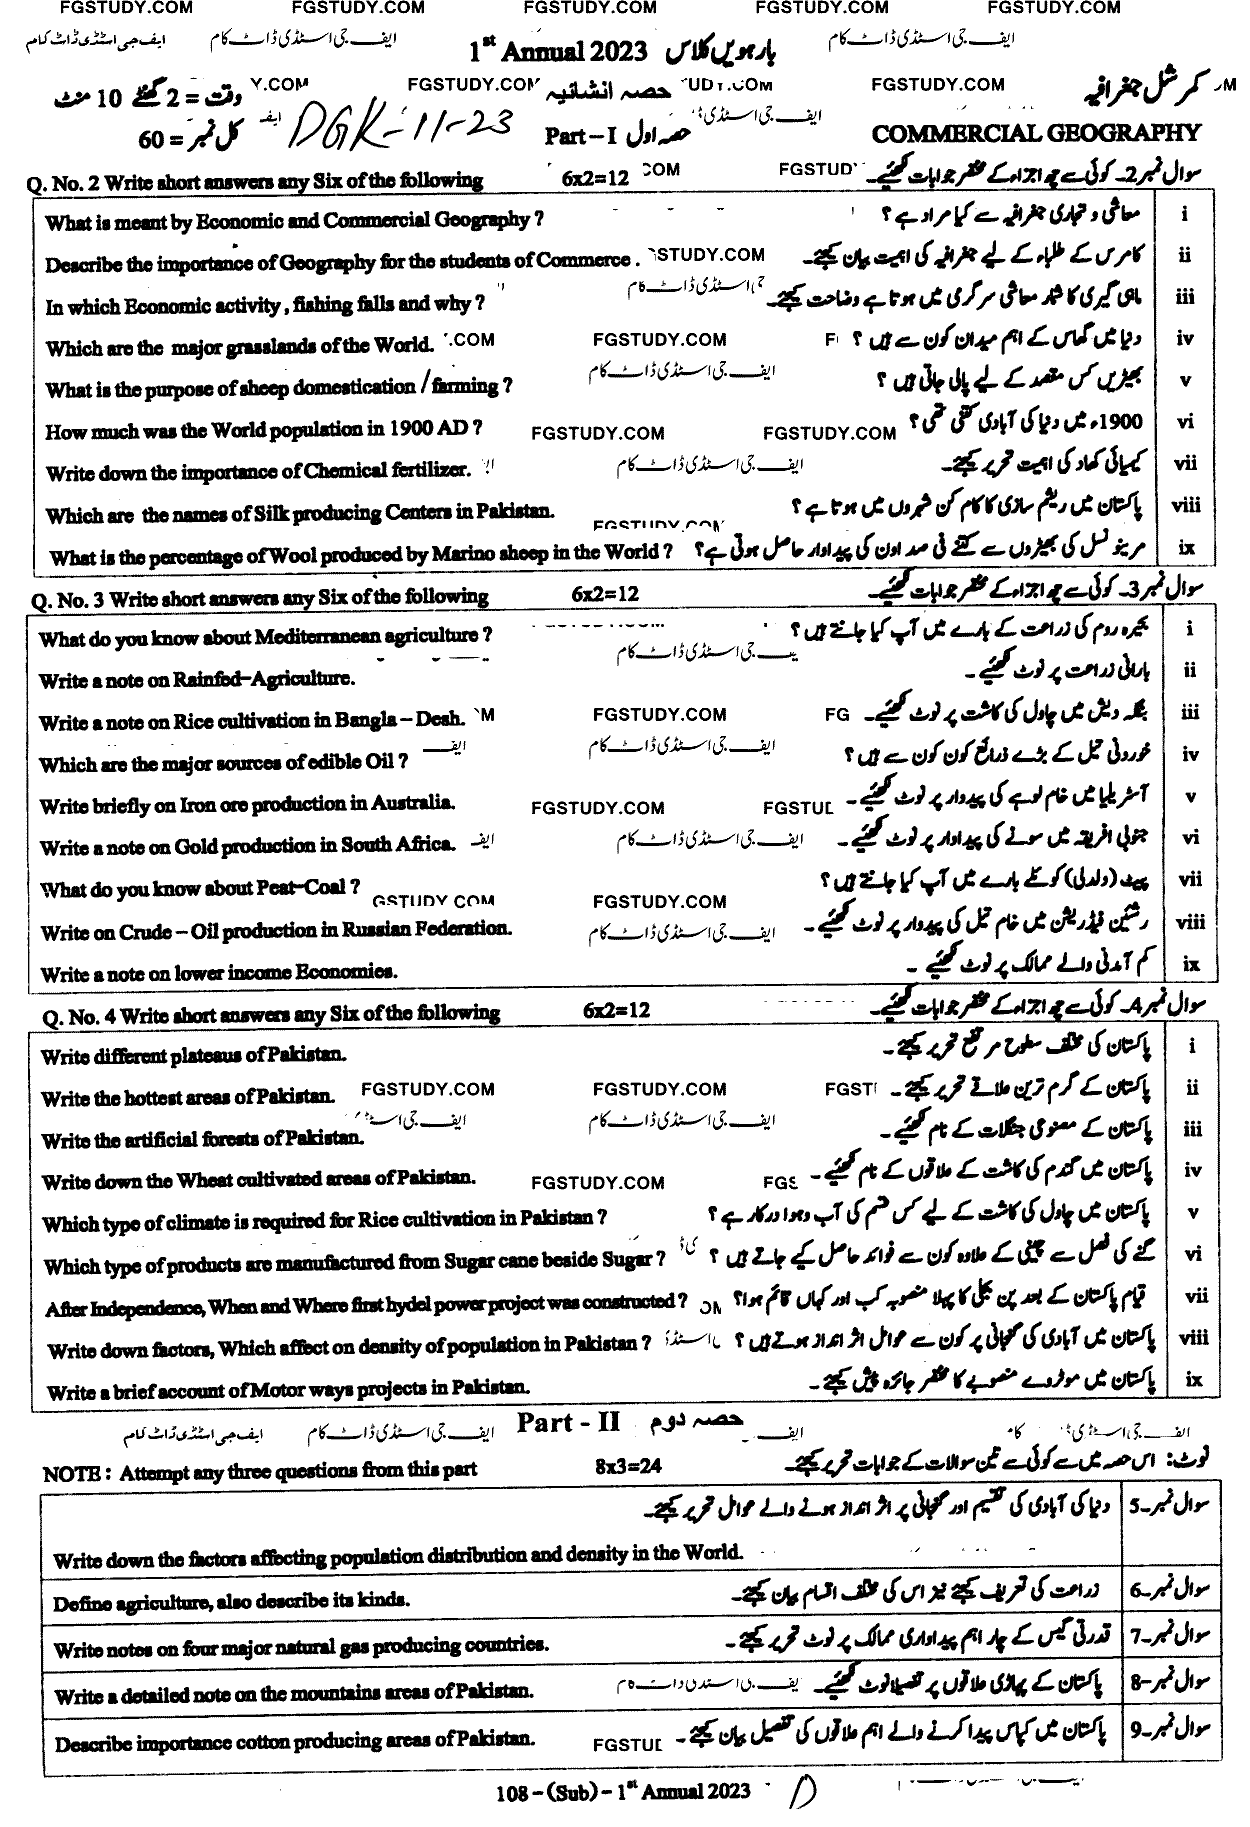 FGSTUDY.COM FGSTUDY.COM FGSTUDY.COM FGSTUDY.COM FGSTUDY.COM
ایف جی اسٹڈی ڈاٹ کام ایف جی اسٹڈی ڈاٹ کام 1st Annual 2023 بارہویں کلاس ایف جی اسٹڈی ڈاٹ کام
وقت = 2 گھنٹے 10 منٹ Y.COM FGSTUDY.COM حصہ انشائیہ FGSTUDY.COM کمرشل جغرافیہ
کل نمبر = 60 DGK-11-23 Part-I حصہ اول COMMERCIAL GEOGRAPHY
Q. No. 2 Write short answers any Six of the following 6x2=12 COM FGSTUD سوال نمبر 2۔ کوئی سے چھ اجزاء کے مختصر جوابات لکھئیے۔
What is meant by Economic and Commercial Geography ? معاشی و تجارتی جغرافیہ سے کیا مراد ہے ؟ i
Describe the importance of Geography for the students of Commerce . GSTUDY.COM کامرس کے طلباء کے لیے جغرافیہ کی اہمیت بیان کیجئے۔ ii
In which Economic activity , fishing falls and why ? ماہی گیری کا شمار معاشی سرگرمی میں ہوتا ہے وضاحت کیجئے۔ iii
Which are the major grasslands of the World. .COM FGSTUDY.COM دنیا میں گھاس کے اہم میدان کون سے ہیں ؟ iv
What is the purpose of sheep domestication / farming ? ایف جی اسٹڈی ڈاٹ کام بھیڑیں کس مقصد کے لیے پالی جاتی ہیں ؟ v
How much was the World population in 1900 AD ? FGSTUDY.COM FGSTUDY.COM 1900ء میں دنیا کی آبادی کتنی تھی ؟ vi
Write down the importance of Chemical fertilizer. ایف جی اسٹڈی ڈاٹ کام کیمیائی کھاد کی اہمیت تحریر کیجئے۔ vii
Which are the names of Silk producing Centers in Pakistan. FGSTUDY.COM پاکستان میں ریشم سازی کا کام کن شہروں میں ہوتا ہے ؟ viii
What is the percentage of Wool produced by Marino sheep in the World ? مرینو نسل کی بھیڑوں سے کتنے فی صد اون کی پیداوار حاصل ہوتی ہے؟ ix
Q. No. 3 Write short answers any Six of the following 6x2=12 سوال نمبر 3۔ کوئی سے چھ اجزاء کے مختصر جوابات لکھئیے۔
What do you know about Mediterranean agriculture ? بحیرہ روم کی زراعت کے بارے میں آپ کیا جانتے ہیں ؟ i
Write a note on Rainfed-Agriculture. بارانی زراعت پر نوٹ لکھئیے۔ ii
Write a note on Rice cultivation in Bangla - Desh. FGSTUDY.COM FG بنگلہ دیش میں چاول کی کاشت پر نوٹ لکھئیے۔ iii
Which are the major sources of edible Oil ? ایف جی اسٹڈی ڈاٹ کام خوردنی تیل کے بڑے ذرائع کون کون سے ہیں ؟ iv
Write briefly on Iron ore production in Australia. FGSTUDY.COM FGSTUD آسٹریلیا میں خام لوہے کی پیدوار پر نوٹ لکھئیے۔ v
Write a note on Gold production in South Africa. ایف ایف جی اسٹڈی ڈاٹ کام جنوبی افریقہ میں سونے کی پیداوار پر نوٹ لکھئیے۔ vi
What do you know about Peat-Coal ? GSTUDY COM FGSTUDY.COM پیٹ (دلدلی) کوئلے بارے میں آپ کیا جانتے ہیں؟ vii
Write on Crude - Oil production in Russian Federation. ایف جی اسٹڈی ڈاٹ کام رشئین فیڈریشن میں خام تیل کی پیدوار پر نوٹ لکھئیے۔ viii
Write a note on lower income Economies. کم آمدنی والے ممالک پر نوٹ لکھئیے۔ ix
Q. No. 4 Write short answers any Six of the following 6x2=12 سوال نمبر 4۔ کوئی سے چھ اجزاء کے مختصر جوابات لکھئیے۔
Write different plateaus of Pakistan. پاکستان کی مختلف سطوح مرتفع تحریر کیجئے۔ i
Write the hottest areas of Pakistan. FGSTUDY.COM FGSTUDY.COM FGST پاکستان کے گرم ترین علاقے تحریر کیجئے۔ ii
Write the artificial forests of Pakistan. ایف جی اسٹڈی ڈاٹ کام پاکستان کے مصنوعی جنگلات کے نام لکھئیے۔ iii
Write down the Wheat cultivated areas of Pakistan. FGSTUDY.COM FGS پاکستان میں گندم کی کاشت کے علاقوں کے نام لکھئیے۔ iv
Which type of climate is required for Rice cultivation in Pakistan ? پاکستان میں چاول کی کاشت کے لیے کس قسم کی آب و ہوا درکار ہے ؟ v
Which type of products are manufactured from Sugar cane beside Sugar ? گنے کی فصل سے چینی کے علاوہ کون سے فوائد حاصل کیے جاتے ہیں ؟ vi
After Independence, When and Where first hydel power project was constructed ? قیام پاکستان کے بعد پن بجلی کا پہلا منصوبہ کب اور کہاں قائم ہوا؟ vii
Write down factors, Which affect on density of population in Pakistan ? پاکستان میں آبادی کی گنجانی پر کون سے عوامل اثر انداز ہوتے ہیں ؟ viii
Write a brief account of Motor ways projects in Pakistan. پاکستان میں موٹروے منصوبے کا مختصر جائزہ پیش کیجئے۔ ix
ایف جی اسٹڈی ڈاٹ کام ایف جی اسٹڈی ڈاٹ کام Part - II حصہ دوم
NOTE : Attempt any three questions from this part 8x3=24 نوٹ: اس حصہ میں سے کوئی سے تین سوالات کے جوابات تحریر کیجئے۔
دنیا کی آبادی کی تقسیم اور گنجانی پر اثر انداز ہونے والے عوامل تحریر کیجئے۔ سوال نمبر 5۔
Write down the factors affecting population distribution and density in the World.
Define agriculture, also describe its kinds. زراعت کی تعریف کیجئے نیز اس کی مختلف اقسام بیان کیجئے۔ سوال نمبر 6۔
Write notes on four major natural gas producing countries. قدرتی گیس کے چار اہم پیداواری ممالک پر نوٹ تحریر کیجئے۔ سوال نمبر 7۔
Write a detailed note on the mountains areas of Pakistan. پاکستان کے پہاڑی علاقوں پر تفصیلاً نوٹ لکھئیے۔ سوال نمبر 8۔
Describe importance cotton producing areas of Pakistan. FGSTUD پاکستان میں کپاس پیدا کرنے والے اہم علاقوں کی تفصیل بیان کیجئے۔ سوال نمبر 9۔
108 - (Sub) - 1st Annual 2023 D